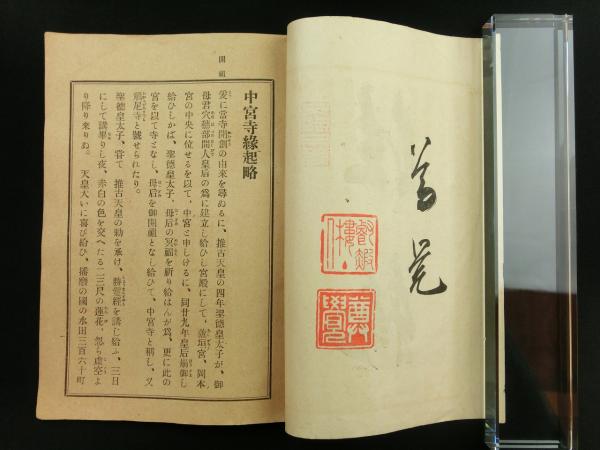 尊覚
尊覺
開祖
中宮寺緣起略
爰に當寺開創の由來を尋ぬるに、推古天皇の四年聖德皇太子が、御
母君穴穗部間人皇后の爲に建立し給ひし宮殿にして、葦垣宮、岡本
宮の中央に位せるを以て、中宮と申しけるに、同廿九年皇后崩御し
給ひしかば、聖德皇太子、母后の冥福を祈り給はんが爲、更に此の
宮を以て寺となし、母后を御開祖となし給ひて、中宮寺と稱し、又
鵤尼寺と號せられたり。
聖德皇太子、嘗て 推古天皇の勅を承け、勝鬘經を講じ給ふ、三日
にして講畢りし夜、赤白の色を交へたる二三尺の蓮花、忽ち虛空よ
り降り來りぬ。 天皇大いに喜び給ひ、播磨の國の水田三百六十町